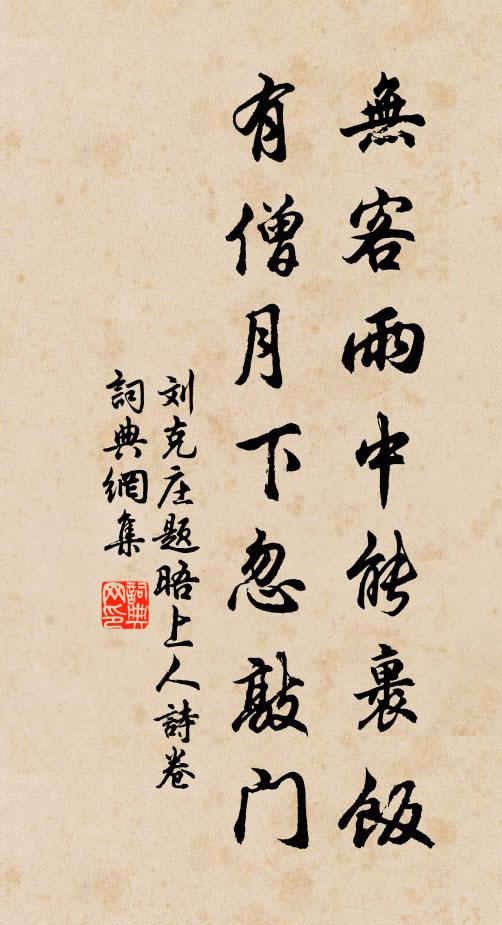 無客雨中能裹飯
有僧月下忽敲門
刘克庄題晤上人詩卷
詞典網集
詞典网印